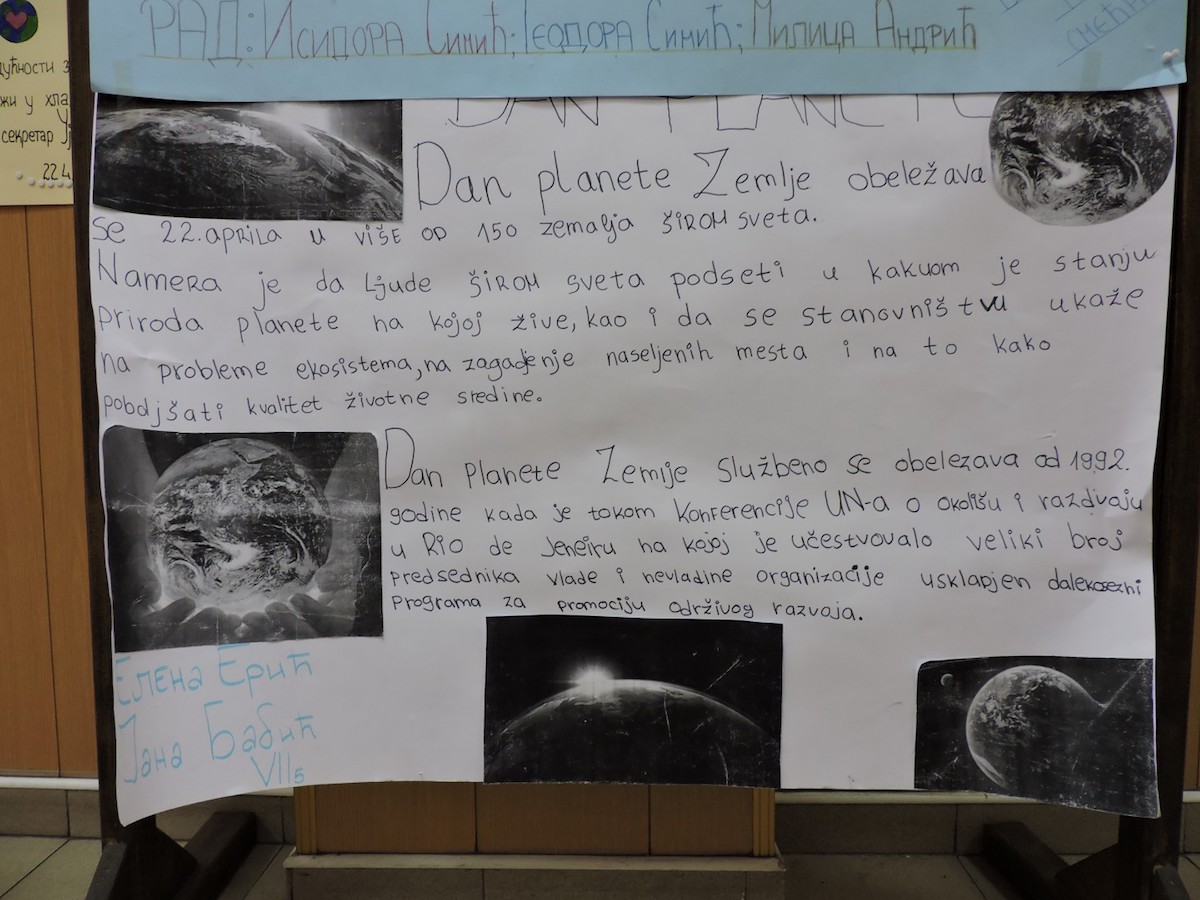 РАД: Исидора Симић; Теодора Симић; Милица Андрић
смећ
дућности з
жи у хла
секретар
22.4
DAN PLANETE
Dan planete Zemlje obeležava
se 22. aprila u više od 150 zemalja širom sveta.
Namera je da ljude širom sveta podseti u kakvom je stanju
priroda planete na kojoj žive, kao i da se stanovništvu ukaže
na probleme ekosistema, na zagađenje naseljenih mesta i na to kako
pobdjšati kvalitet životne sredine.
Dan Planete Zemlje službeno se obelezava od 1992.
godine kada je tokom Konferencije UN-a o okolišu i razdivaju
u Rio de Jeneiru na kojoj je učestvovalo veliki broj
predsednika vlade i nevladine organizacije usklapjen dalekosezni
Programa za promociju održivog razvoja.
Елена Ерић
Јана Бабић
VII5